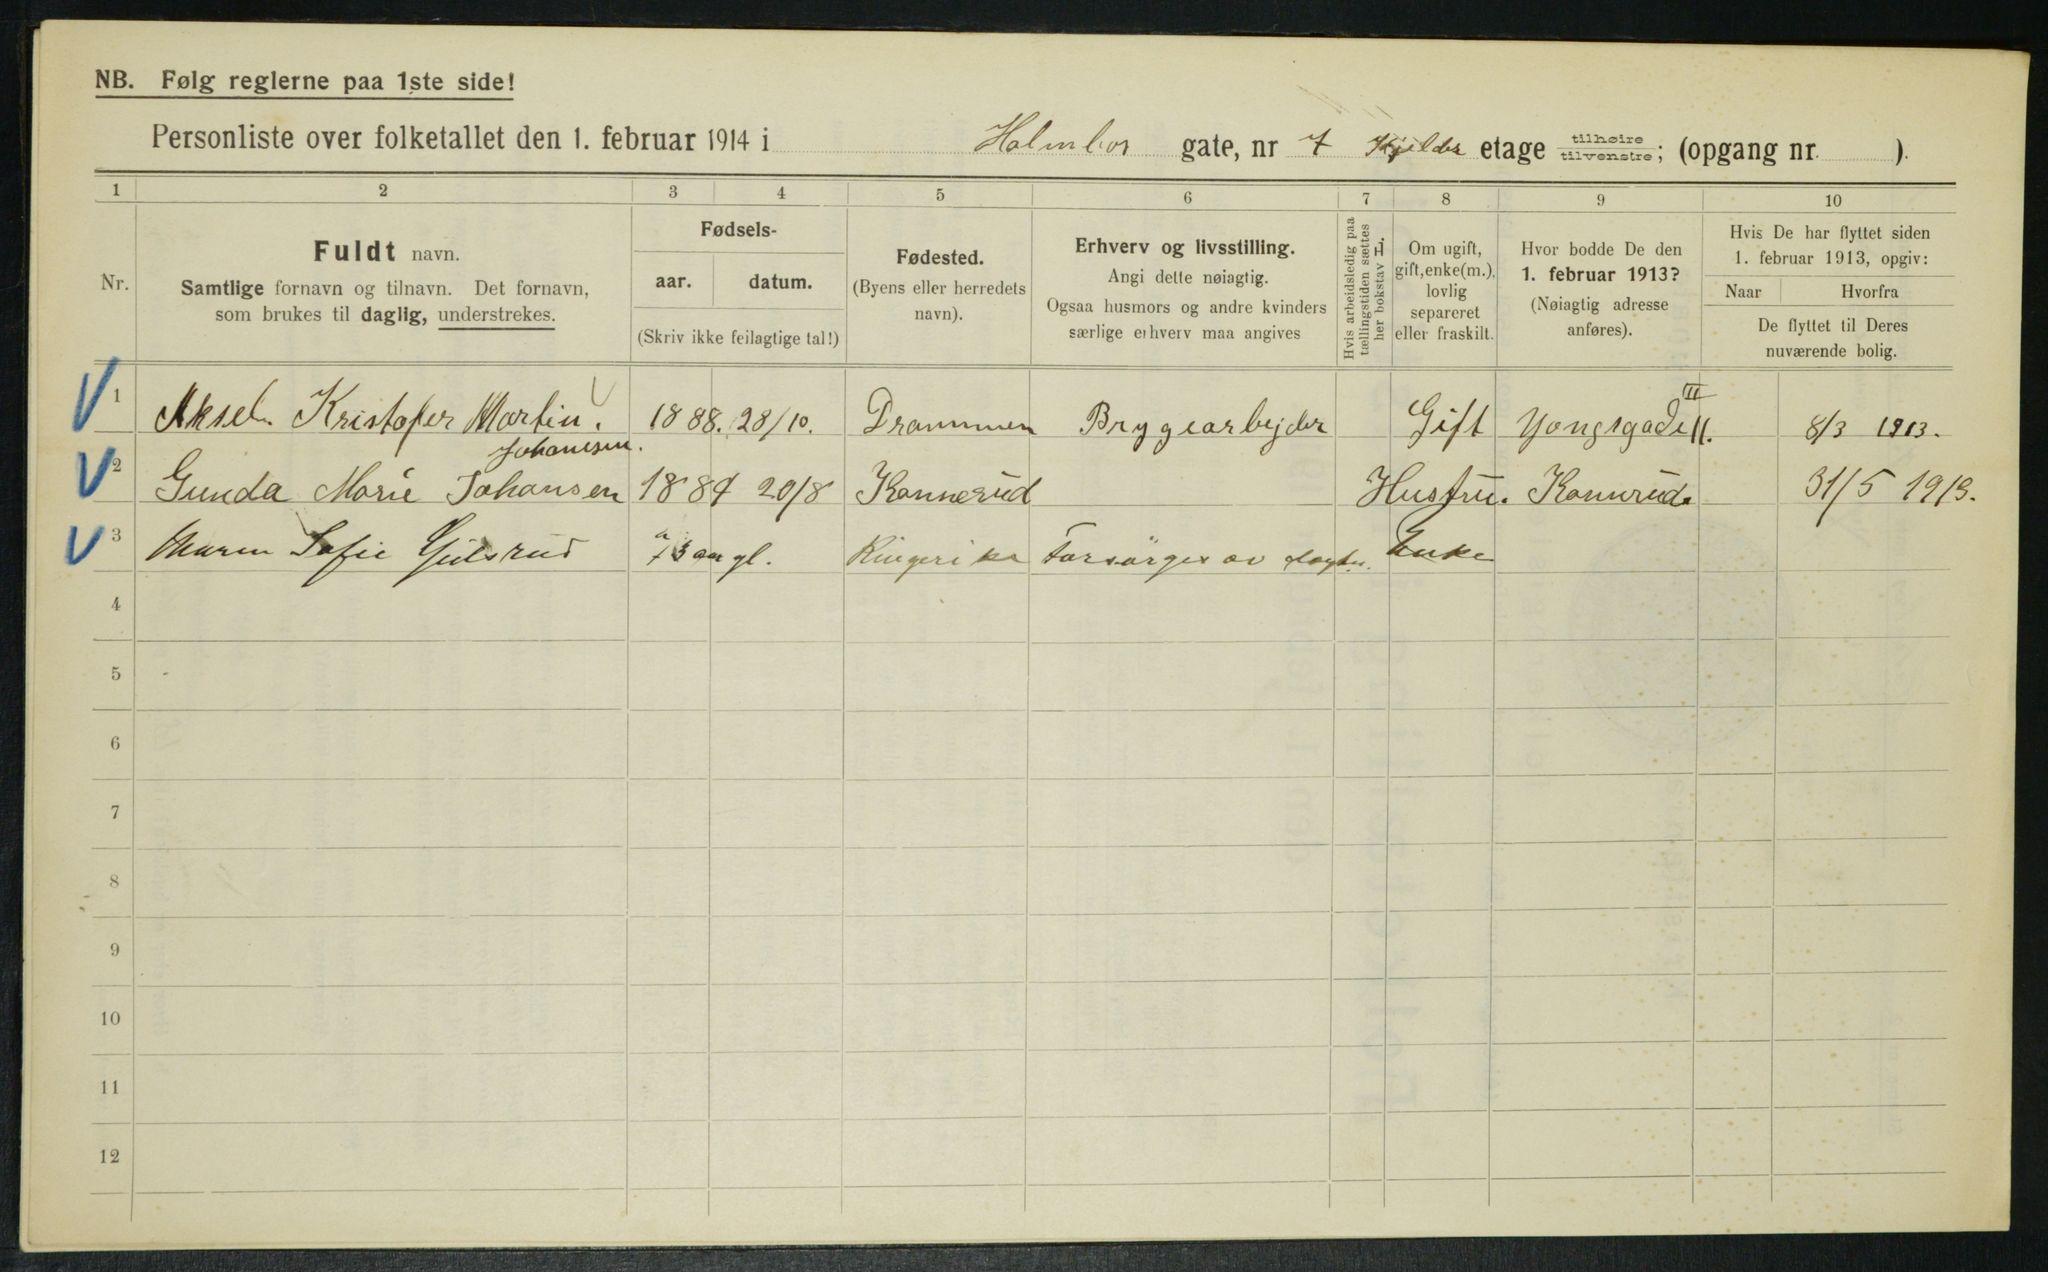 NB. Følg reglerne paa 1ste side!
Personliste over folketallet den 1. februar 1914 i Holmbos gate, nr 7 Kjelder etage tilhøire/tilvenstre; (opgang nr. ).
1 2 3 4 5 6 7 8 9 10
Nr.
Fuldt navn.
Samtlige fornavn og tilnavn. Det fornavn,
som brukes til daglig, understrekes.
Fødsels-
aar. datum.
(Skriv ikke feilagtige tal!)
Fødested.
(Byens eller herredets
navn).
Erhverv og livsstilling.
Angi dette nøiagtig.
Ogsaa husmors og andre kvinders
særlige erhverv maa angives
Hvis arbeidsledig paa
tællingstiden sættes
her bokstav L.
Om ugift,
gift, enke(m.),
lovlig
separeret
eller fraskilt.
Hvor bodde De den
1. februar 1913?
(Nøiagtig adresse
anføres).
Hvis De har flyttet siden
1. februar 1913, opgiv:
Naar Hvorfra
De flyttet til Deres
nuværende bolig.
1 Aksel Kristofer Martin. 1888. 28/10. Drammen Brygearbejder Gift Yongsgade 11. III 8/3 1913.
Johansen.
2 Gunda Marie Johansen 1884 20/8 Konnerud Hustru. Konnerud. 31/5 1913.
3 Maren Sofie Gulsrud 73 aar gl. Ringerike Forsörges av dogter. Enke
4
5
6
7
8
9
10
11
12